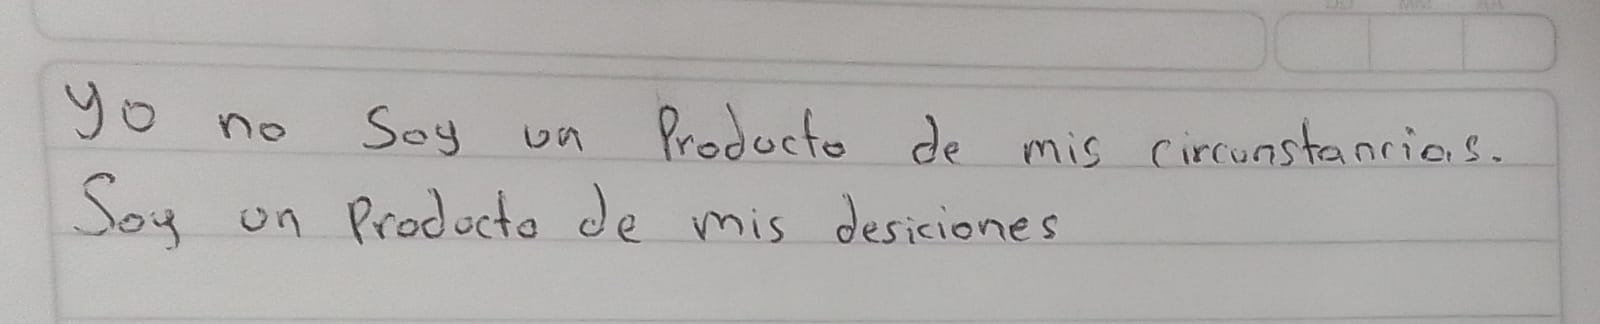 yo no Soy un Producto de mis circunstancias.
Soy un Producto de mis desiciones